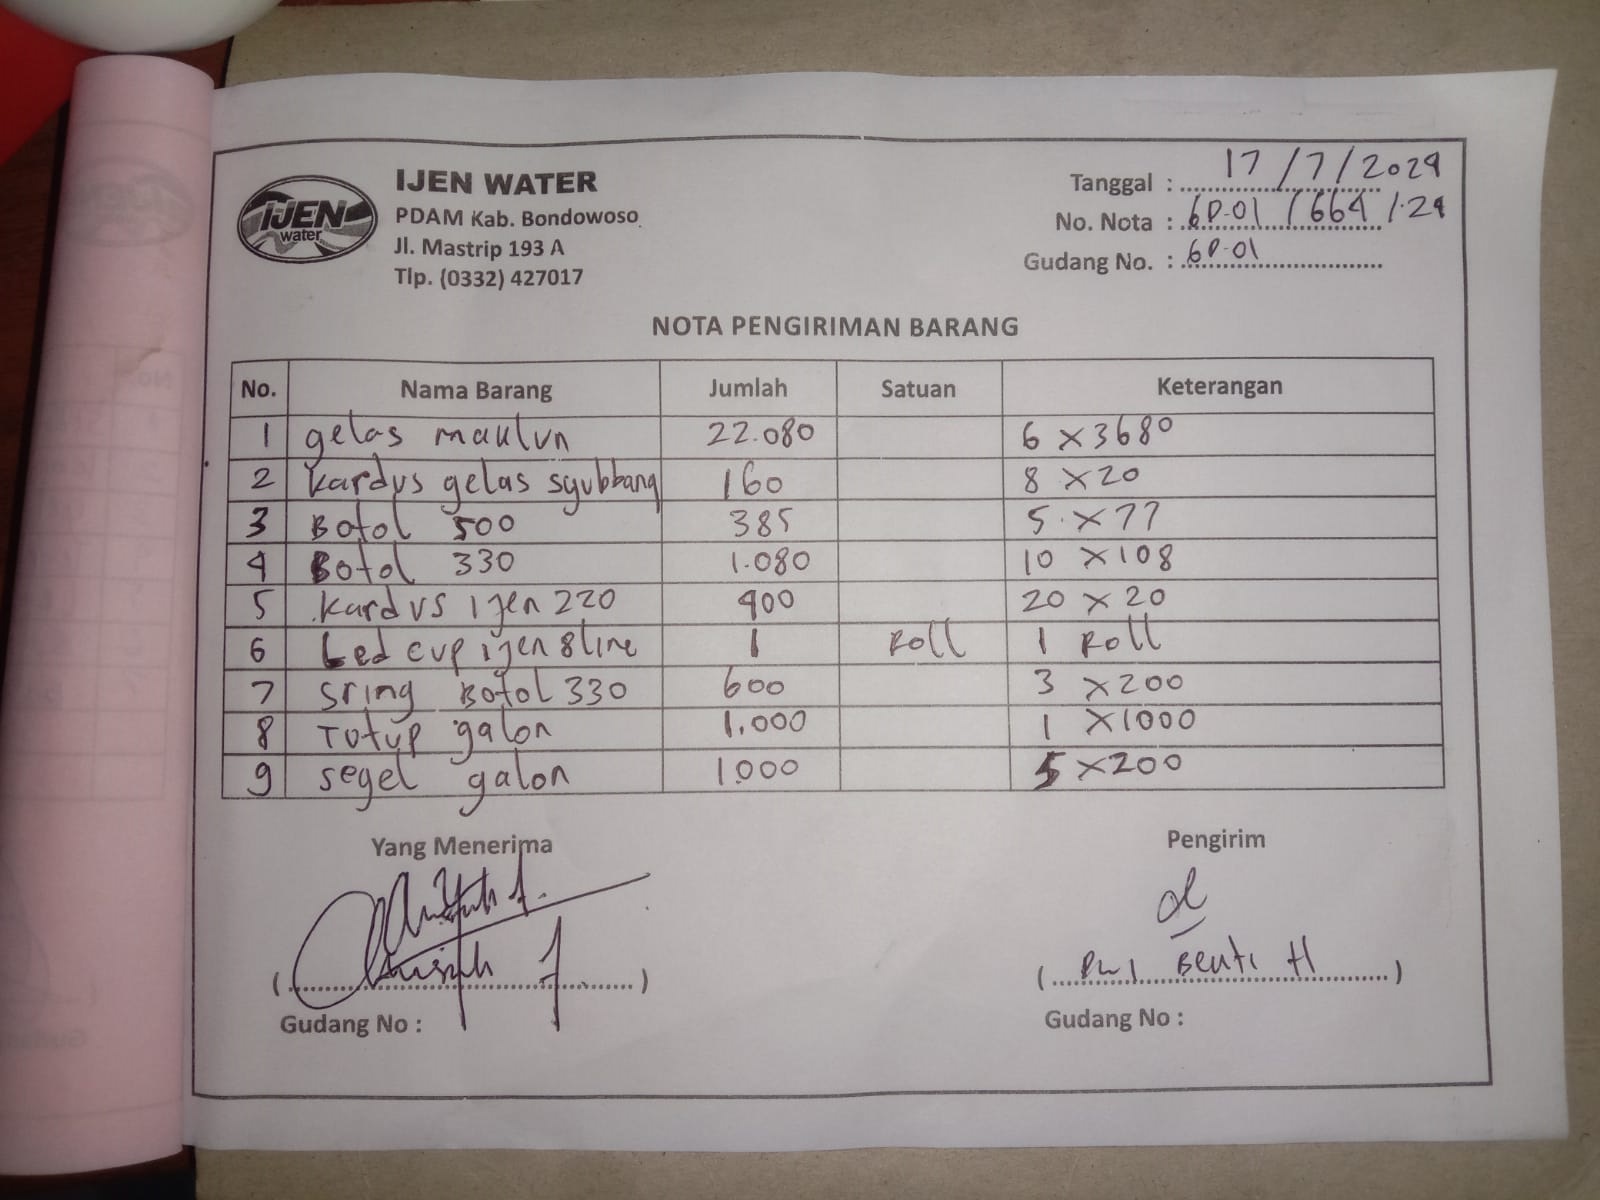 IJEN WATER
PDAM Kab. Bondowoso
Jl. Mastrip 193 A
Tlp. (0332) 427017
IJEN
water
Tanggal : 17/7/2024
No. Nota : GD-01 / 664 / .24
Gudang No. : GD-01
NOTA PENGIRIMAN BARANG
No. Nama Barang Jumlah Satuan Keterangan
1 gelas maulun 22.080 6 x 3680
2 kardus gelas syubbang 160 8 x 20
3 Botol 500 385 5 x 77
4 Botol 330 1.080 10 x 108
5 kardus ijen 220 400 20 x 20
6 Led cup ijen 8 line 1 Roll 1 Roll
7 sring Botol 330 600 3 x 200
8 Tutup galon 1.000 1 x 1000
9 segel galon 1.000 5 x 200
Yang Menerima Pengirim
( ) ( Dwi H )
Gudang No : Gudang No :